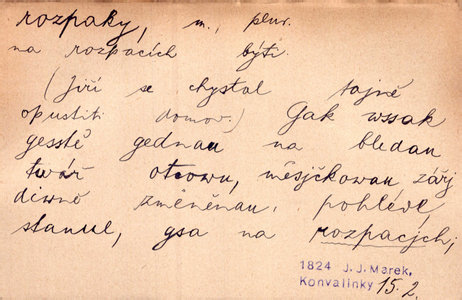 rozpaky, m., plur.
na rozpacích býti.
(Jiří se chystal tajně
opustiti domov.) Gak wssak
gesstě gednau na bledau
twář otcowu, měsjčkowau zářj
diwně změněnau, pohléde,
stanul, gsa na rozpacjch;
1824 J. J. Marek,
Konvalinky 15.2.